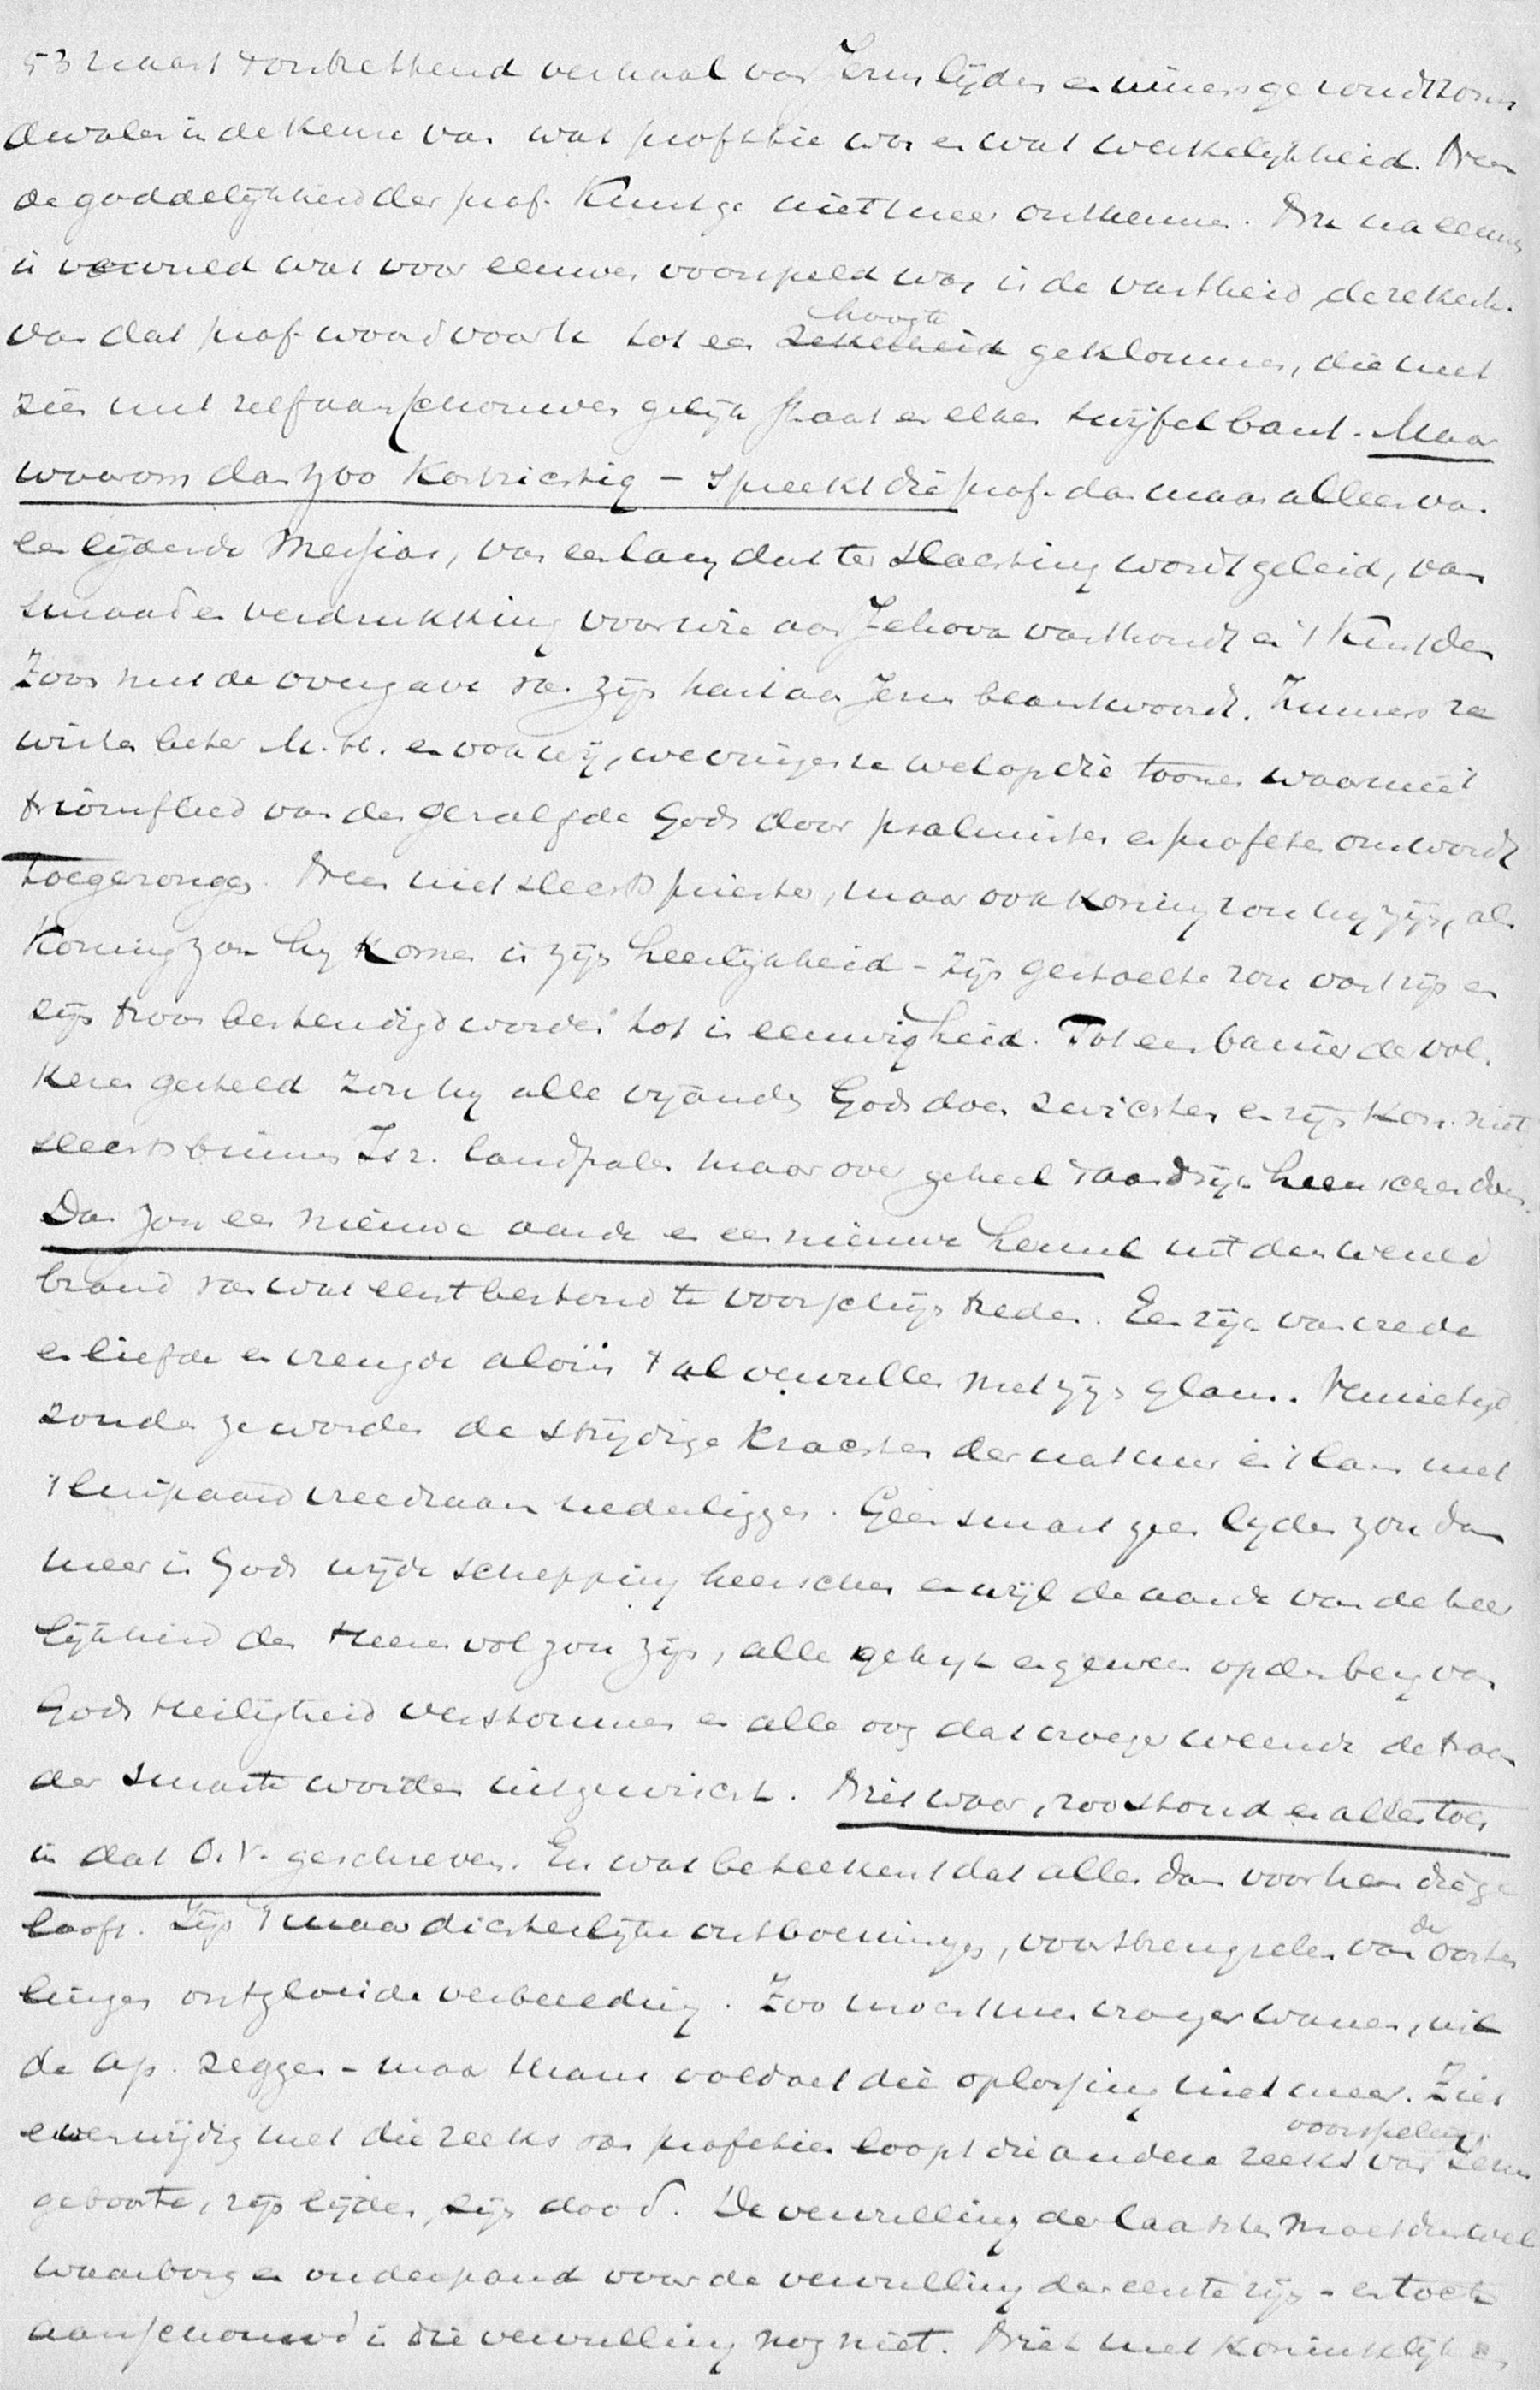 53 naast 't ontzettend verhaal van Jezus lijden en nimmer ge
dwalen in de keuze van wat profetie was en wat werkelijkheid. Neen
de goddelijkheid der prof. kunt ge niet meer ontkennen. Nu na eeuwen
is vervuld wat voor eeuwen voorspeld was is de vastheid, de zekerh.
van dat prof. woord voor U tot een hoogte geklommen, die met
zien met zelfaanschouwen gelijk staat en elken twijfel bant. Maar
waarom dan zoo kortzichtig – spreekt die prof. dan maar alleen van
een lijdende Messias, van een lam dat ter slachting wordt geleid, van
smaad en verdrukking voor wie aan Jehova vasthoudt en 't kind den
Zoon met de overgave van zijn hart aan Jezus beantwoordt. Immers ze
wisten beter M. H. en ook wij, we vingen ze wel op die toonen waarmeê 't
triomflied van den gezalfde Gods door psalmisten en profeten ons wordt
toegezongen. Neen niet slechts priester, maar ook Koning zou hij zijn, als
Koning zou hij komen in zijn heerlijkheid – zijn gestoelte zou vast zijn en
zijn troon bestendigd worden tot in eeuwigheid. Tot een banier der vol-
keren gesteld zou hij alle vijanden Gods doen zwichten en zijn Kon. niet
slechts binnen Isr. landpalen maar over geheel 't aardrijk heerschen doen.
Dan zou een nieuwe aarde en een nieuwe hemel uit den wereld
brand van wat eerst bestond te voorschijn treden. Een rijk van vrede
en liefde en vreugde alom 't al vervullen met zijn glans. Verniet
zouden ze worden de strijdige krachten der natuur en 't lam met
't luipaard vreedzaam nederliggen. Geen smart geen lijden zou dan
meer in Gods wijde schepping heerschen en wijl de aarde van de heer
lijkheid des Heeren vol zou zijn, alle gekrijt en geween op den berg van
Gods Heiligheid verstommen en alle oog dat vroeger weende de traan
der smarte worden uitgewischt. Niet waar, zoo stond en alles toch
in dat O.V. geschreven. En wat beteekent dat alles dan voor hen die ge
looft. Zijn 't maar dichterlijke ontboezemingen, voortbrengselen van de ooster
lingen ontgloeide verbeelding. Zoo mocht men vroeger wanen, wil
de Ap. zeggen – maar thans voldoet die oplossing niet meer. Ziet
evenwijdig met die reeks van profetiën loopt die andere reeks voorspelling van Jezus
geboorte, zijn lijden, zijn dood. De vervulling der laatste moet dus wel
waarborg en onderpand voor de vervulling der eerste zijn – en toch
aanschouwd is die vervulling nog niet. Niet met koninklijken